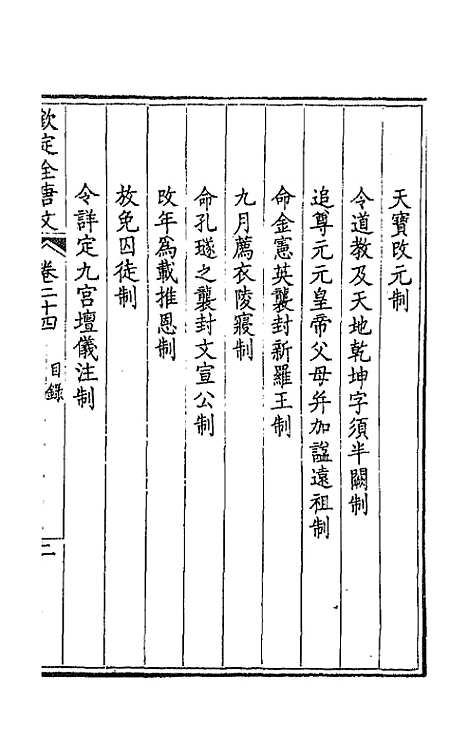 天寶改元制
令道教及天地乾坤字須半闕制
追尊元元皇帝父母幷加諡遠祖制
命金憲英襲封新羅王制
九月薦衣陵寢制
命孔璲之襲封文宣公制
改年爲載推恩制
放免囚徒制
令詳定九宮壇儀注制
欽定全唐文
卷二十四
目錄
二